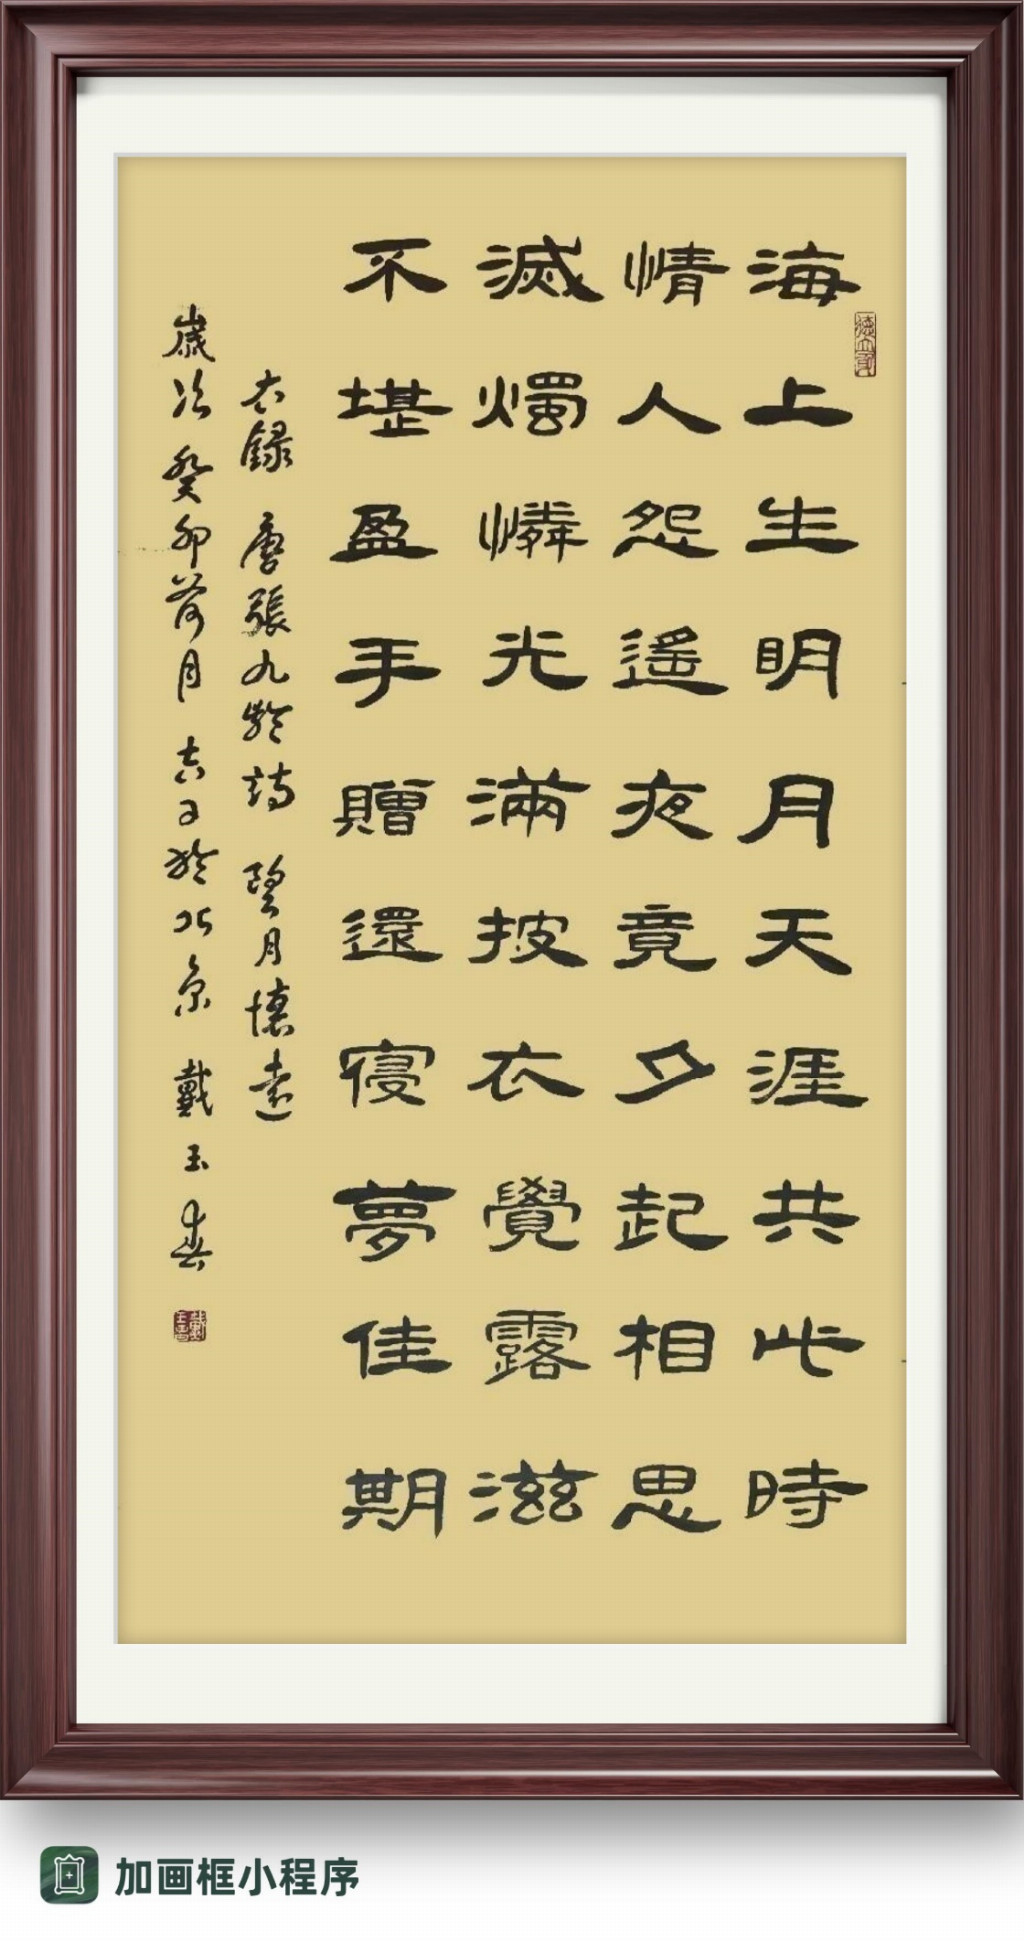 海上生明月天涯共此時
情人怨遥夜竟夕起相思
滅燭憐光滿披衣覺露滋
不堪盈手贈還寝夢佳期
右録 唐張九齡詩 望月懷遠
歲次癸卯荷月吉日於北京 戴玉春
加画框小程序